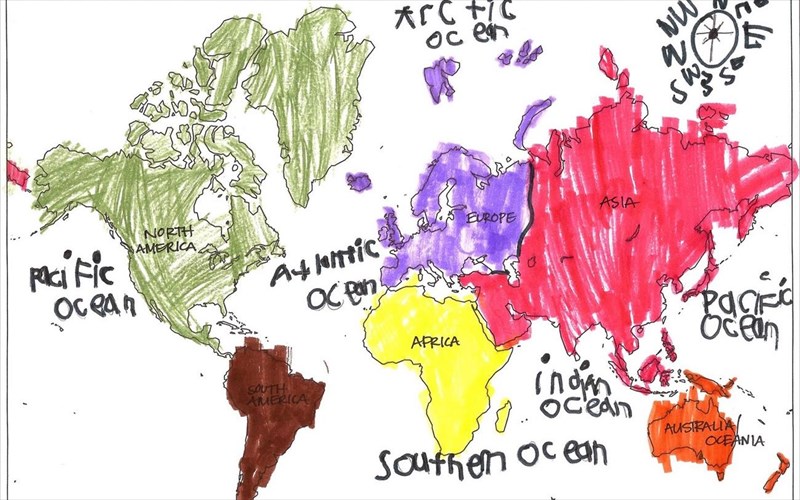 Arctic
ocean
NW N NE
W E
SW S SE
NORTH
AMERICA
EUROPE
ASIA
pacific
ocean
Atlantic
ocean
pacific
ocean
AFRICA
indian
ocean
SOUTH
AMERICA
AUSTRALIA/
OCEANIA
Southern ocean